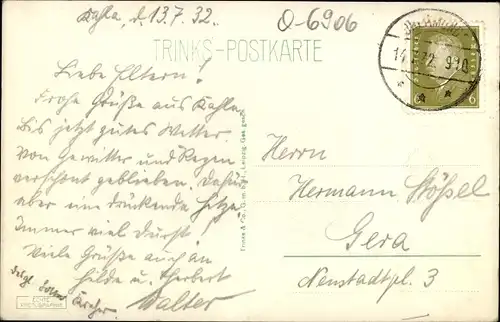 Kahla, d. 13.7.32.
Q-6906
TRINKS-POSTKARTE
14. 32. 9-10
6 6
Liebe Eltern!
Frohe Grüße aus Kahla.
Bis jetzt gutes Wetter
von Gewitter und Regen
verschont geblieben. Dafür
aber eine drückende Hitze.
Immer viel Durst!
Viele Grüße auch an
Hilde u. Herbert
Walter
Trinks & Co., G.m.b.H., Leipzig. Ges. gesch.
Herrn
Hermann Stößel
Gera
Neustadtpl. 3
ECHTE
PHOTOGRAPHIE